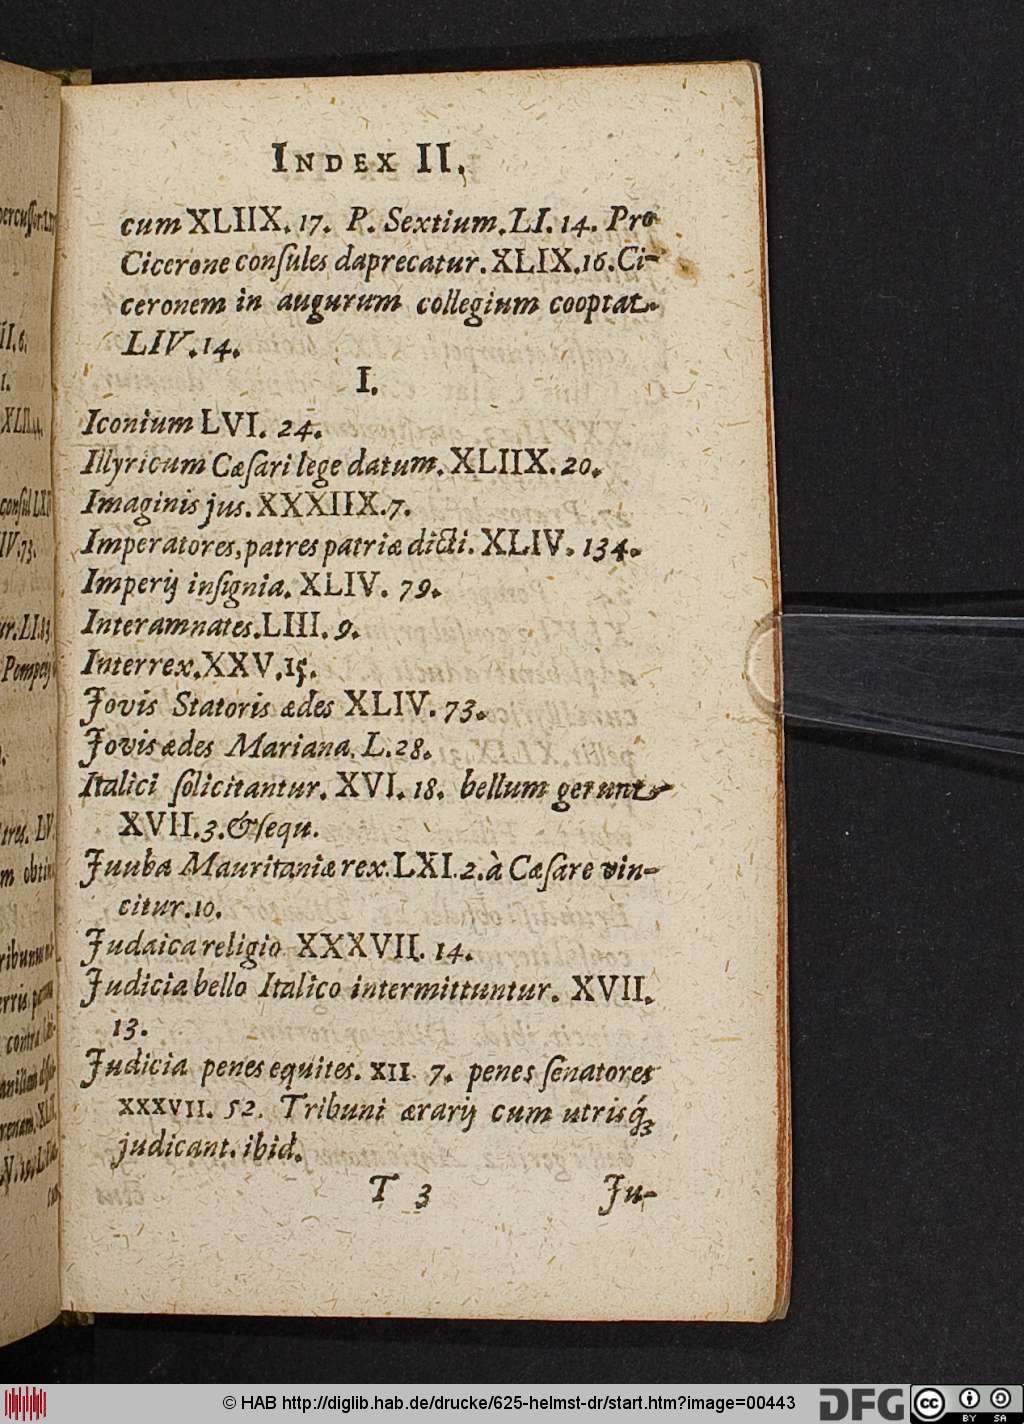 INDEX II.
cum XLIIX. 17. P. Sextium. LI. 14. Pro
Cicerone conſules daprecatur. XLIX. 16. Ci-
ceronem in augurum collegium cooptat.
LIV. 14.
I.
Iconium LVI. 24.
Illyricum Cæſari lege datum. XLIIX. 20.
Imaginis jus. XXXIIX. 7.
Imperatores, patres patriæ dicti. XLIV. 134.
Imperij inſignia. XLIV. 79.
Interamnates. LIII. 9.
Interrex. XXV. 15.
Jovis Statoris ædes XLIV. 73.
Jovis ædes Mariana. L. 28.
Italici ſolicitantur. XVI. 18. bellum gerunt
XVII. 3. & ſequ.
Juuba Mauritaniæ rex. LXI. 2. à Cæſare vin-
citur. 10.
Judaica religio XXXVII. 14.
Judicia bello Italico intermittuntur. XVII.
13.
Judicia penes equites. XII. 7. penes ſenatores
XXXVII. 52. Tribuni ærarij cum utrisq́;
judicant. ibid.
T 3 Ju-
© HAB http://diglib.hab.de/drucke/625-helmst-dr/start.htm?image=00443
DFG
cc
BY SA